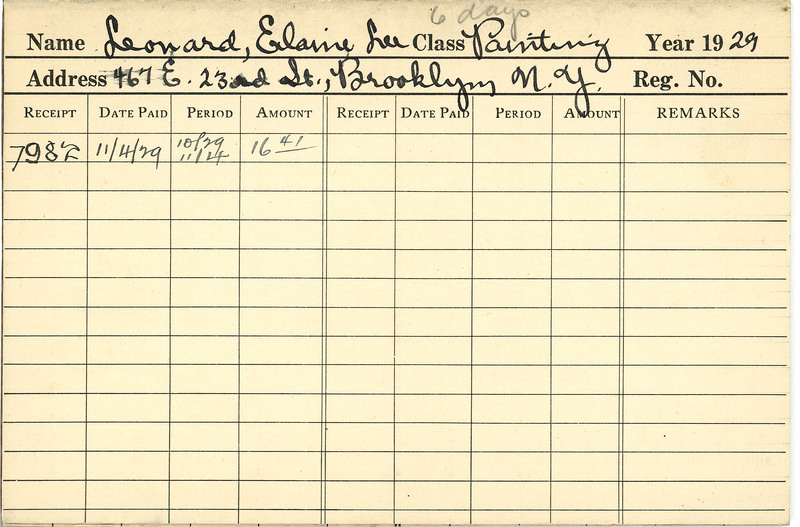 6 days
Name Leonard, Elaine Lee Class Painting Year 1929
Address 467 E. 23rd St., Brooklyn, N. Y. Reg. No.
RECEIPT DATE PAID PERIOD AMOUNT RECEIPT DATE PAID PERIOD AMOUNT REMARKS
7982 11/4/29 10/29 11/24 16 41